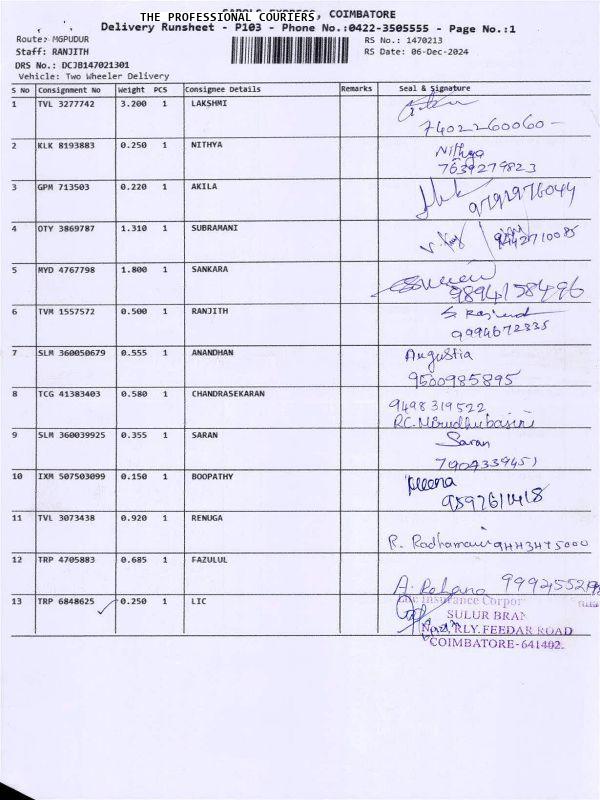 THE PROFESSIONAL COURIERS, COIMBATORE
Delivery Runsheet - P103 - Phone No.:0422-3505555 - Page No.:1
Route: MGPUDUR RS No.: 1470213
Staff: RANJITH RS Date: 06-Dec-2024
DRS No.: DCJB147021301
Vehicle: Two Wheeler Delivery
S No Consignment No Weight PCS Consignee Details Remarks Seal & Signature
1 TVL 3277742 3.200 1 LAKSHMI
7402260060
2 KLK 8193883 0.250 1 NITHYA Nithya
7639279823
3 GPM 713503 0.220 1 AKILA
9791976044
4 OTY 3869787 1.310 1 SUBRAMANI
5 MYD 4767798 1.800 1 SANKARA
9894158496
6 TVM 1557572 0.500 1 RANJITH
9994672335
7 SLM 360050679 0.555 1 ANANDHAN Angustia
9500985895
8 TCG 41383403 0.580 1 CHANDRASEKARAN 9498319522
9 SLM 360039925 0.355 1 SARAN Saran
7904339451
10 IXM 507503099 0.150 1 BOOPATHY Meena
9597611418
11 TVL 3073438 0.920 1 RENUGA
R. Radhamani 9443475000
12 TRP 4705883 0.685 1 FAZULUL
13 TRP 6848625 0.250 1 LIC
SULUR BRAN
RLY. FEEDAR ROAD
COIMBATORE-641402.